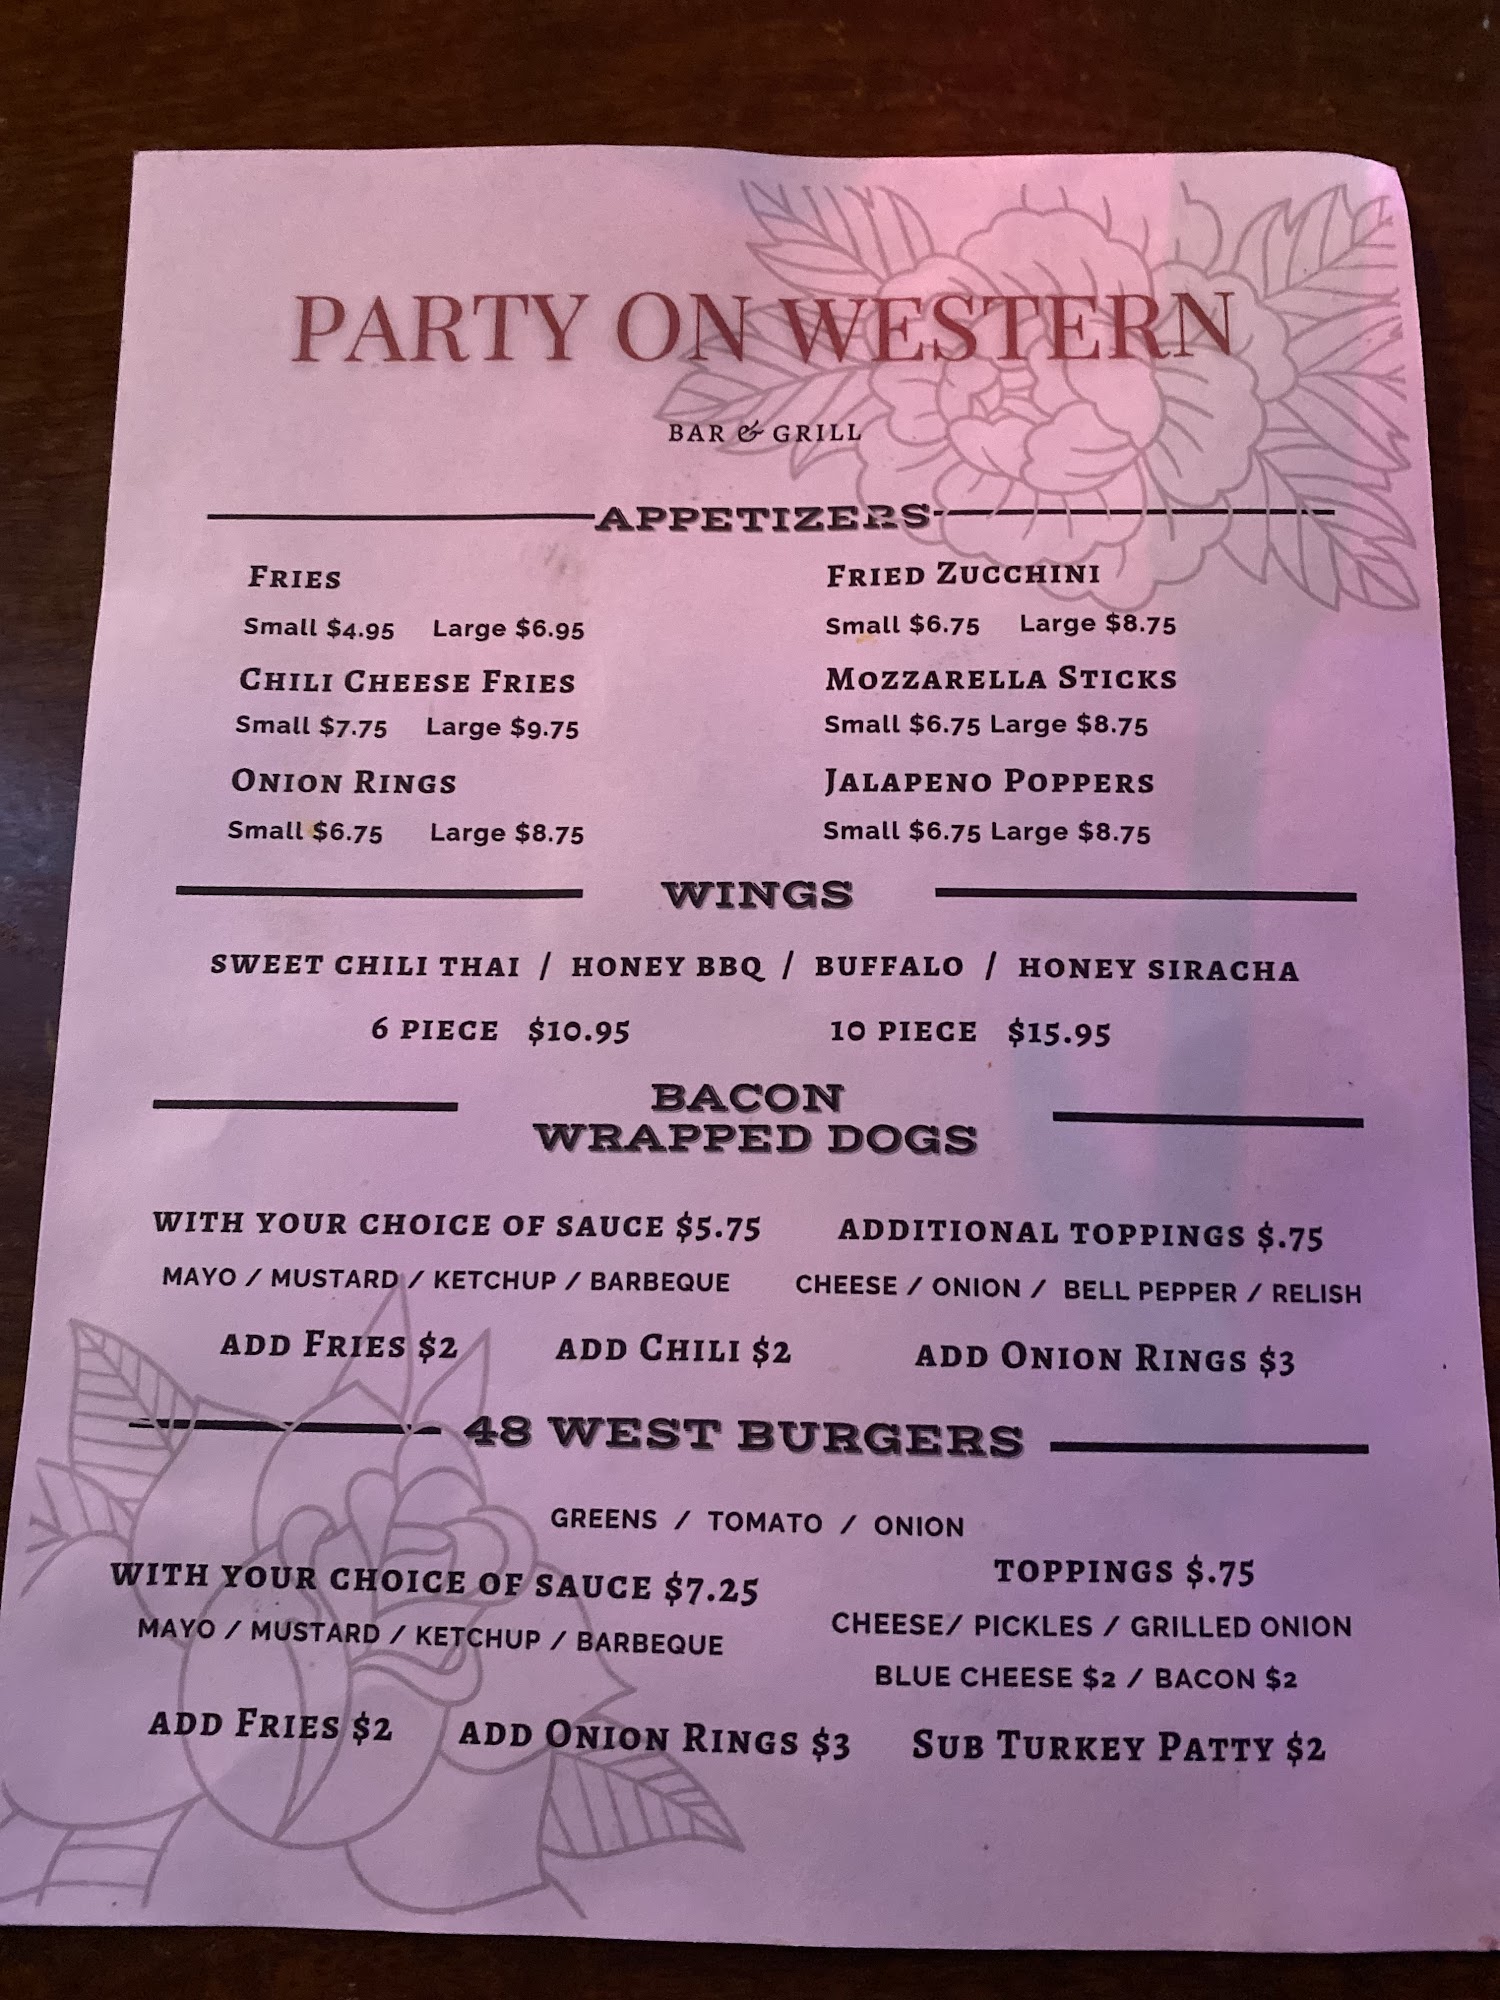 PARTY ON WESTERN
BAR & GRILL
APPETIZERS
FRIES
Small $4.95 Large $6.95
CHILI CHEESE FRIES
Small $7.75 Large $9.75
ONION RINGS
Small $6.75 Large $8.75
FRIED ZUCCHINI
Small $6.75 Large $8.75
MOZZARELLA STICKS
Small $6.75 Large $8.75
JALAPENO POPPERS
Small $6.75 Large $8.75
WINGS
SWEET CHILI THAI / HONEY BBQ / BUFFALO / HONEY SIRACHA
6 PIECE $10.95 10 PIECE $15.95
BACON
WRAPPED DOGS
WITH YOUR CHOICE OF SAUCE $5.75
MAYO / MUSTARD / KETCHUP / BARBEQUE
ADDITIONAL TOPPINGS $.75
CHEESE / ONION / BELL PEPPER / RELISH
ADD FRIES $2 ADD CHILI $2 ADD ONION RINGS $3
48 WEST BURGERS
GREENS / TOMATO / ONION
WITH YOUR CHOICE OF SAUCE $7.25
MAYO / MUSTARD / KETCHUP / BARBEQUE
TOPPINGS $.75
CHEESE/ PICKLES / GRILLED ONION
BLUE CHEESE $2 / BACON $2
ADD FRIES $2 ADD ONION RINGS $3 SUB TURKEY PATTY $2